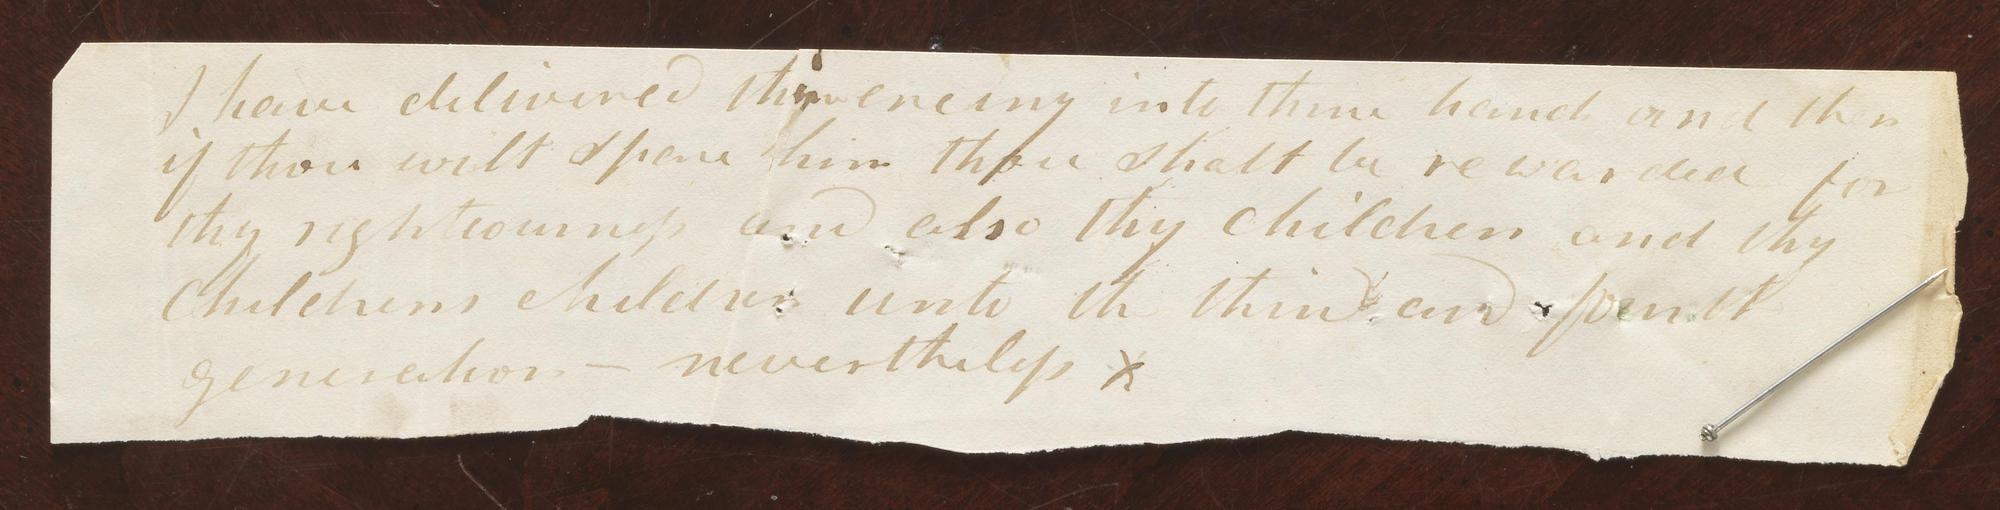 I have delivered thine eneimy into thine hand and then
if thou wilt spare him thou shalt be rewarded for
thy righteousness and also thy children and thy
Childrens children unto th third and fourth
generation — nevertheless X